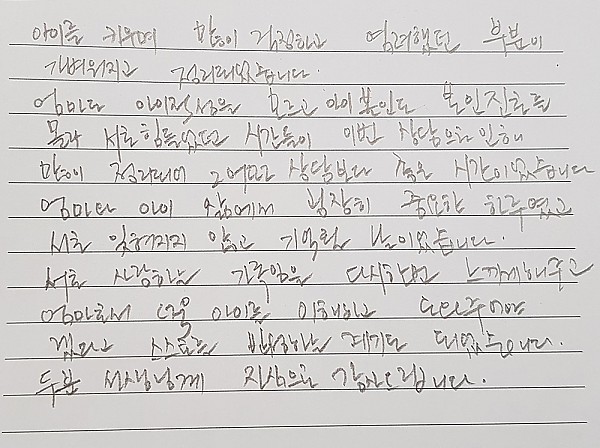 아이를 키우며 많이 걱정하고 염려했던 부분이
가벼워지고 정리되었습니다.
엄마도 아이적성을 모르고 아이 본인도 본인진로를
몰라 서로힘들었던 시간들이 이번 상담으로 인해
많이 정리되며 그 어떤 상담보다 좋은 시간이었습니다
엄마와 아이 삶에서 굉장히 중요한 하루였고
서로 잊혀지지 않고 기억될 날이었습니다.
서로 사랑하는 가족임을 다시한번 느끼게해주고
엄마로서 더욱 아이를 이해하고 도와주어야
겠다고 스스로를 반성하는 계기도 되었습니다.
두분 선생님께 진심으로 감사드립니다.